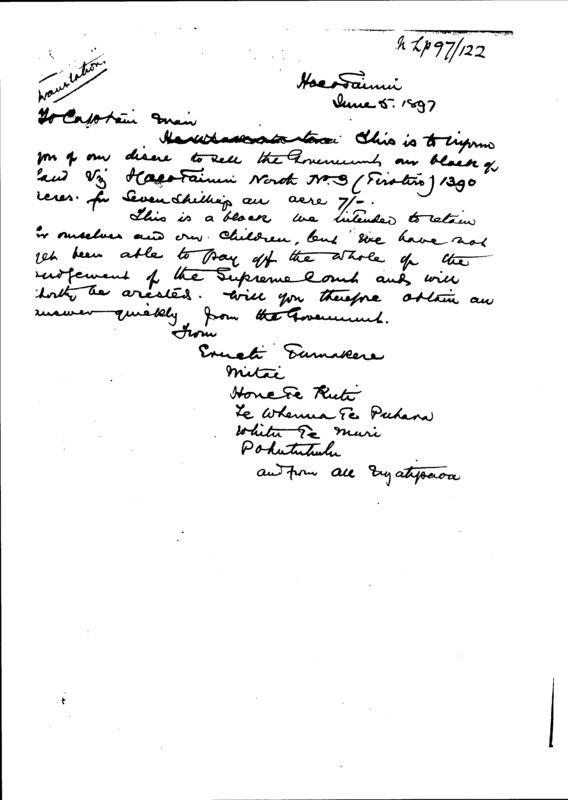 N Lp 97/122
Translation.
HaeoTainui
June 5. 1897
To Captain Mair
This is to inform
you of our desire to sell the Government our block of
land Viz HaeoTainui North No. 3 (Firstly) 1390
acres. for Seven Shillings an acre 7/-.
This is a block we intended to retain
for ourselves and our children, but we have not
yet been able to pay off the whole of the
judgement of the Supreme Court and will
shortly be arested. Will you therefore obtain an
answer quickly from the Government.
From
Erueti Tumakere
Mitai
Hone Te Ruti
Te Whenua Te Puhara
Whitu Te Muri
and from all